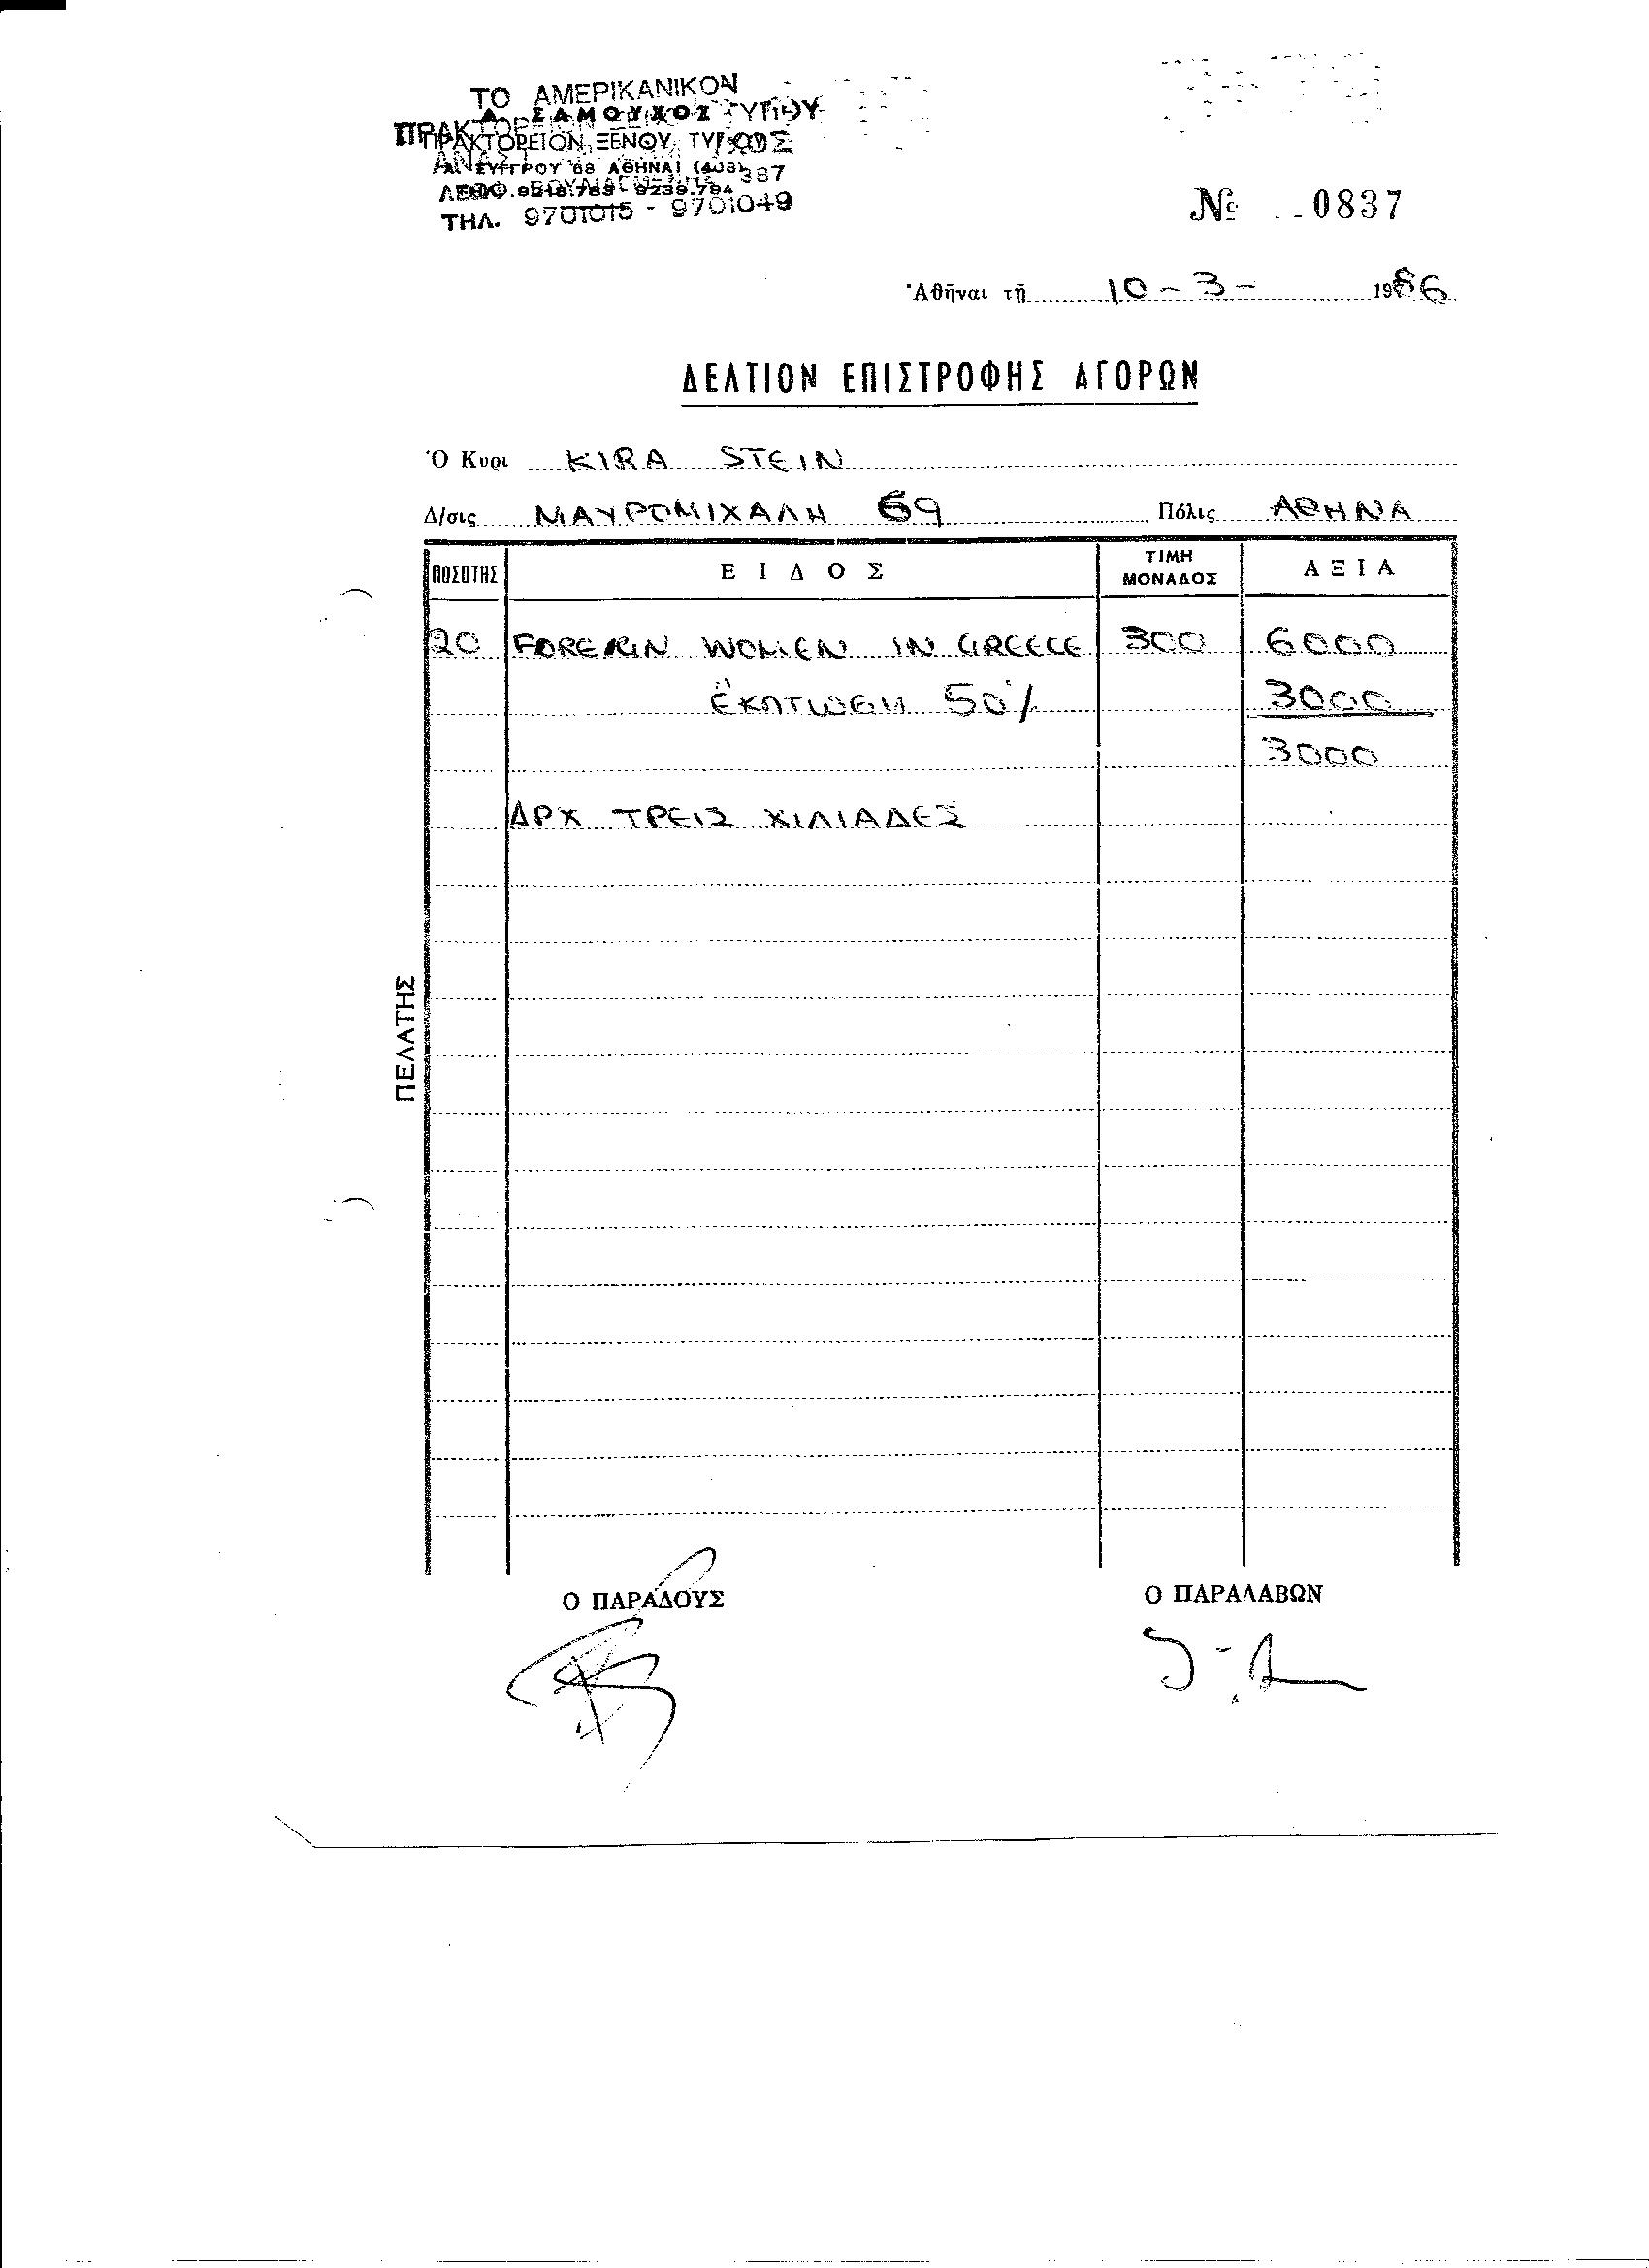 ΤΟ ΑΜΕΡΙΚΑΝΙΚΟΝ
Α. ΣΑΜΟΥΧΟΣ ΤΥΠΟΥ
ΠΡΑΚΤΟΡΕΙΟΝ ΞΕΝΟΥ ΤΥΠΟΥ
ΣΥΓΓΡΟΥ 68 ΑΘΗΝΑΙ (403) 387
9239.794
ΤΗΛ. 9701015 - 9701049
№ 0837
Ἀθῆναι τῇ 10-3- 1986
ΔΕΛΤΙΟΝ ΕΠΙΣΤΡΟΦΗΣ ΑΓΟΡΩΝ
Ὁ Κυρι KIRA STEIN
Δ/σις ΜΑΥΡΟΜΙΧΑΛΗ 69 Πόλις ΑΘΗΝΑ
ΠΟΣΟΤΗΣ ΕΙΔΟΣ ΤΙΜΗ ΜΟΝΑΔΟΣ ΑΞΙΑ
20 FOREIGN WOMEN IN GREECE 300 6000
ΈΚΠΤΩΣΗ 50% 3000
3000
ΔΡΧ ΤΡΕΙΣ ΧΙΛΙΑΔΕΣ
ΠΕΛΑΤΗΣ
Ο ΠΑΡΑΔΟΥΣ Ο ΠΑΡΑΛΑΒΩΝ